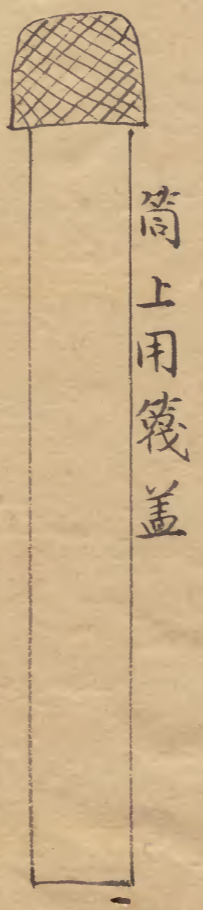 筒上用篾盖